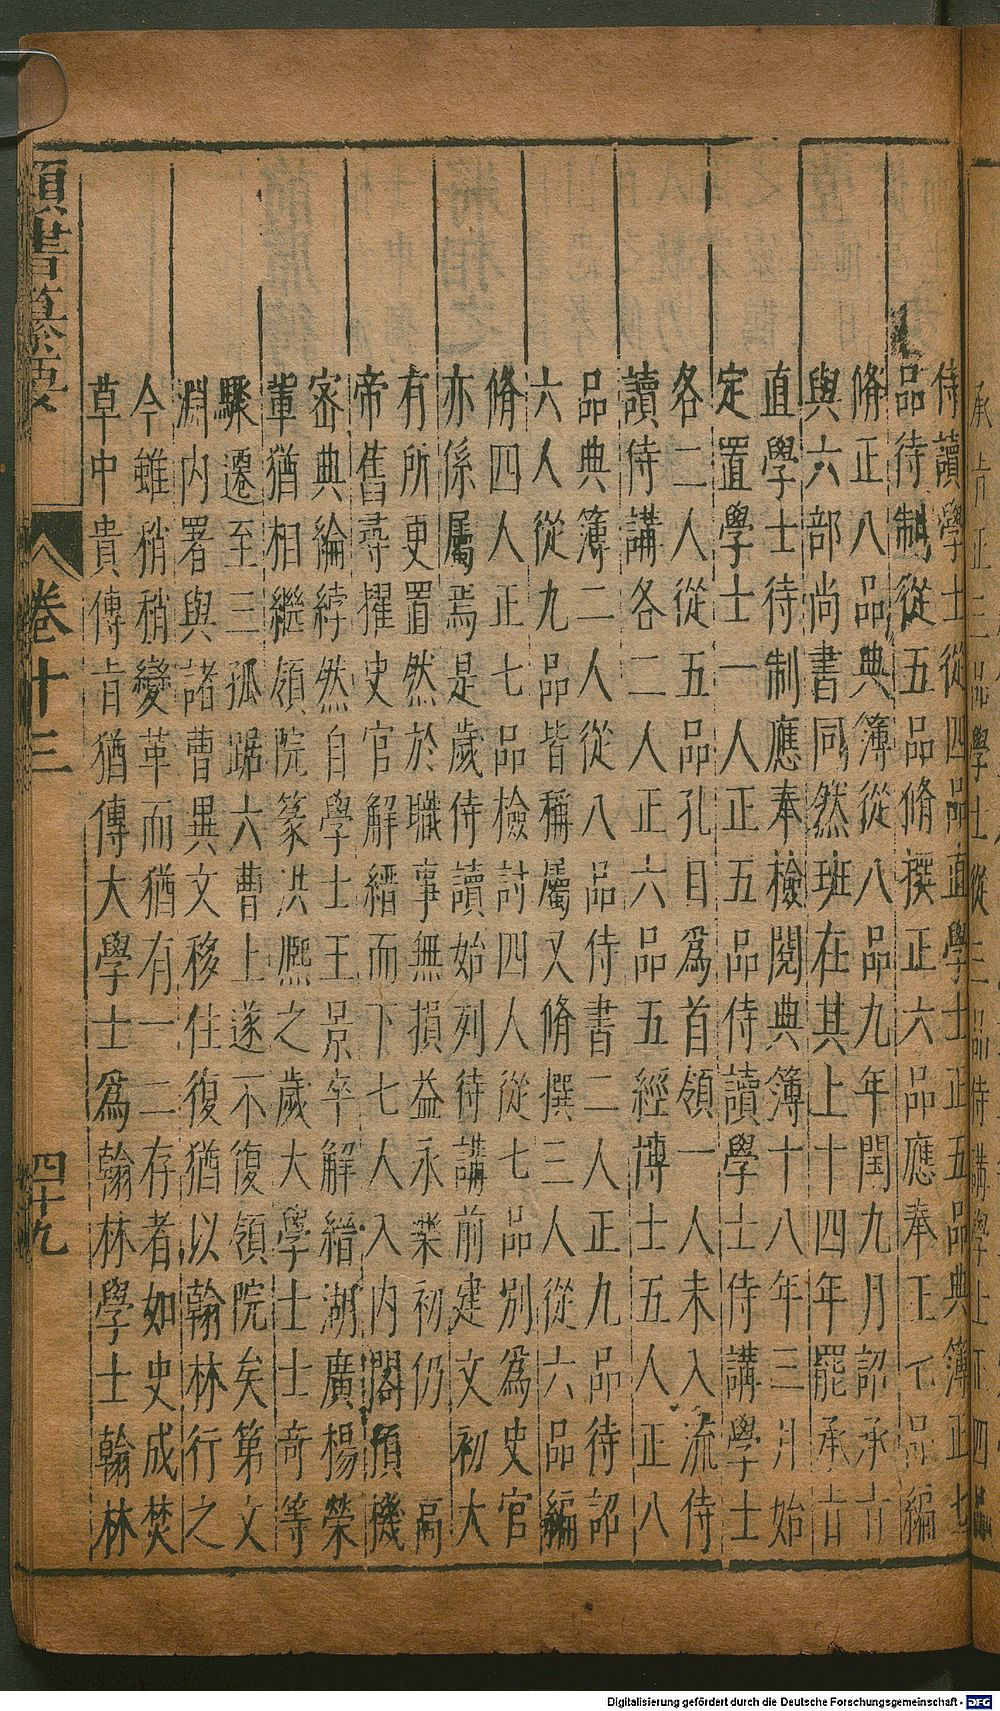 侍讀學士從四品直學士正五品典簿正七
品待制從五品脩撰正六品應奉正七品編
脩正八品典簿從八品九年閏九月詔承㫖
與六部尚書同然班在其上十四年罷承㫖
直學士待制應奉檢閱典簿十八年三月始
定置學士一人正五品侍讀學士侍講學士
各二人從五品孔目為首領一人未入流侍
讀侍講各二人正六品五經博士五人正八
品典簿二人從八品侍書二人正九品待詔
六人從九品皆稱屬又脩撰三人從六品編
脩四人正七品檢討四人從七品別為史官
亦係屬焉是歲侍讀始列待講前建文初大
有所更置然於職事無損益永樂初仍　高
帝舊尋擢史官解縉而下七人入內閣預機
密典綸綍然自學士王景卒解縉湖廣楊榮
輩猶相繼領院篆洪熈之歲大學士士奇等
驟遷至三孤踞六曹上遂不復領院矣第文
淵內署與諸曹異文移住復猶以翰林行之
今雖稍稍變革而猶有一二存者如史成焚
草中貴傳㫖猶傳大學士為翰林學士翰林
類書纂要
卷十三
四十九
Digitalisierung gefördert durch die Deutsche Forschungsgemeinschaft - DFG